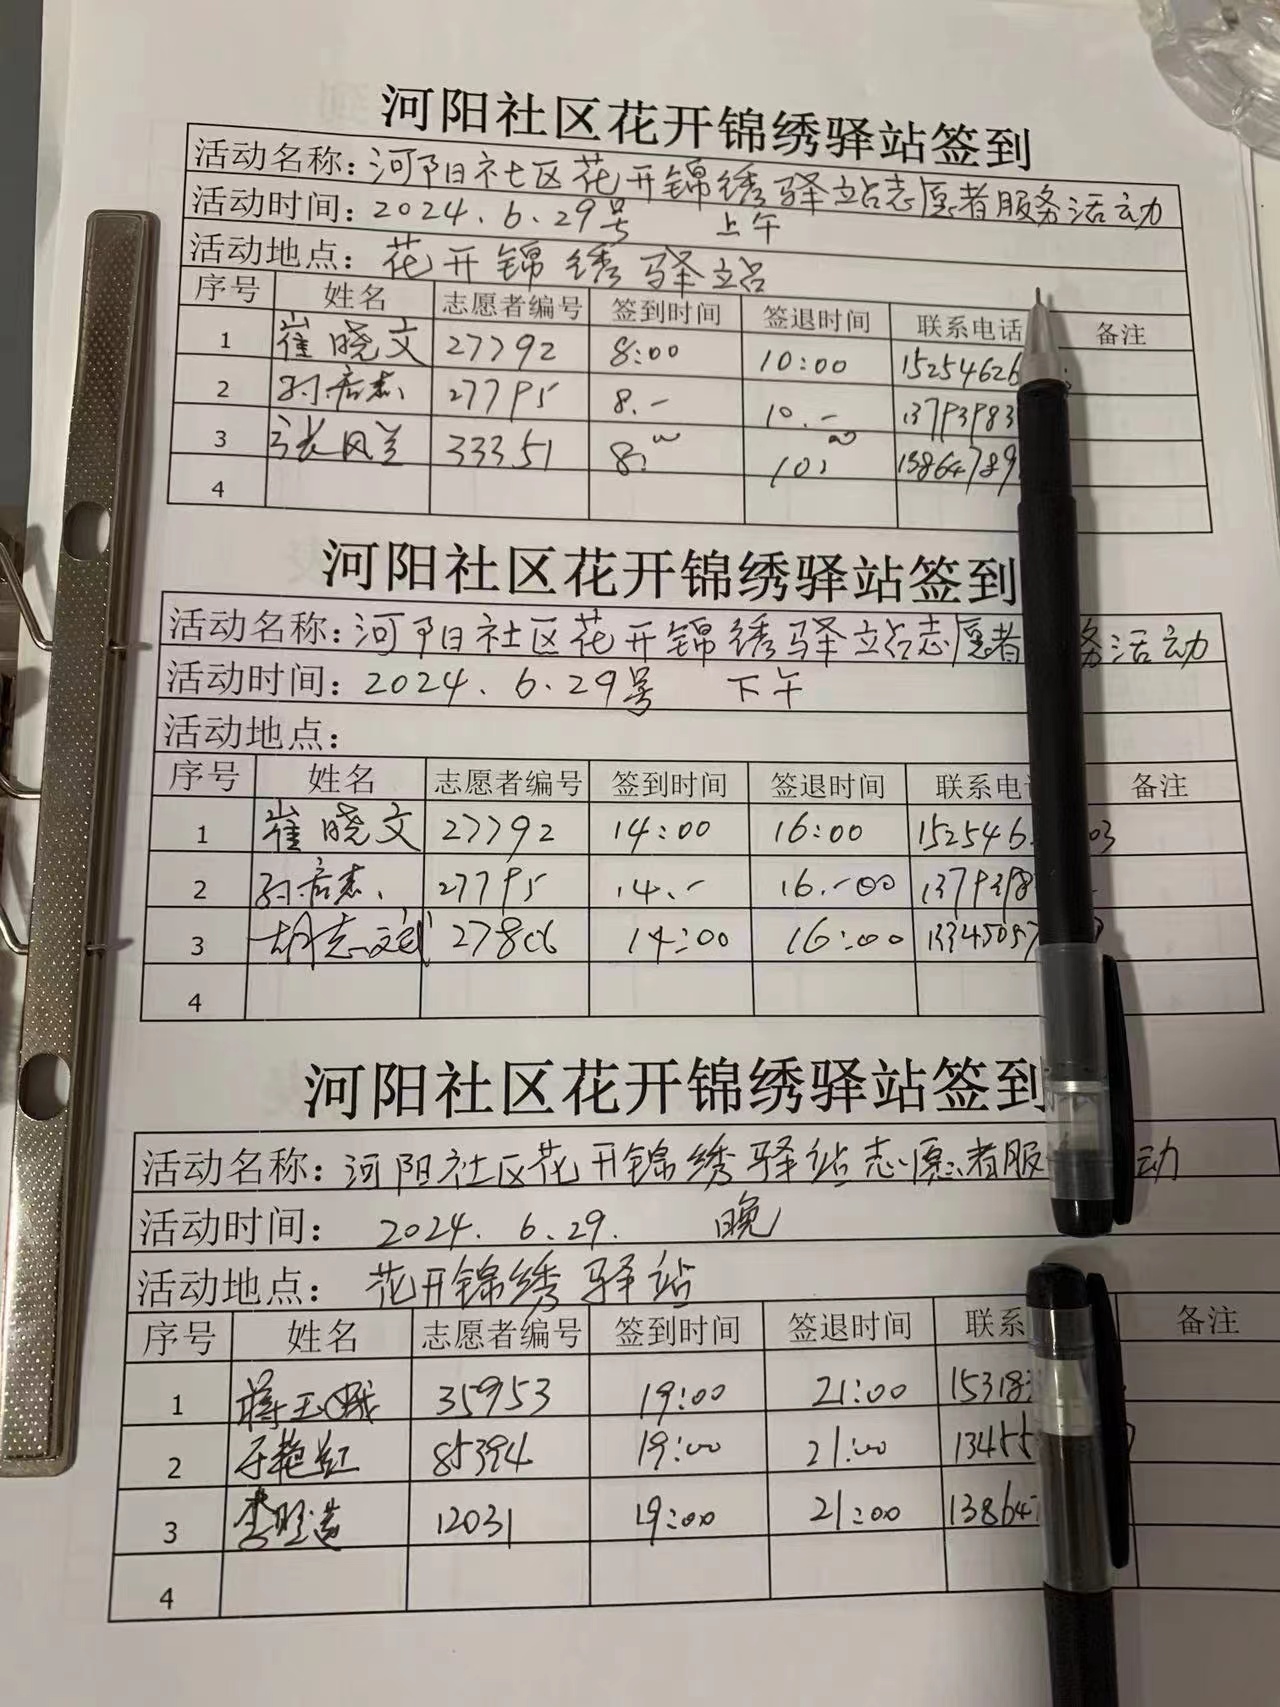 河阳社区花开锦绣驿站签到
活动名称：河阳社区花开锦绣驿站志愿者服务活动
活动时间：2024.6.29号 上午
活动地点：花开锦绣驿站
序号 姓名 志愿者编号 签到时间 签退时间 联系电话 备注
1 崔晓文 27792 8:00 10:00 15254626
2 27795 8.- 10.- 13793983
3 张风兰 33351 8:00 10:00 13864789
4
河阳社区花开锦绣驿站签到
活动名称：河阳社区花开锦绣驿站志愿者 务活动
活动时间：2024.6.29号 下午
活动地点：
序号 姓名 志愿者编号 签到时间 签退时间 联系电 备注
1 崔晓文 27792 14:00 16:00 152546 03
2 27795 14.- 16.-00 1379398
3 胡志斌 27806 14:00 16:00 13345097
4
河阳社区花开锦绣驿站签到
活动名称：河阳社区花开锦绣驿站志愿者服 动
活动时间： 2024.6.29. 晚
活动地点： 花开锦绣驿站
序号 姓名 志愿者编号 签到时间 签退时间 联系 备注
1 35953 19:00 21:00 15318
2 于艳红 85394 19:00 21:00 13455
3 12031 19:00 21:00 13864
4